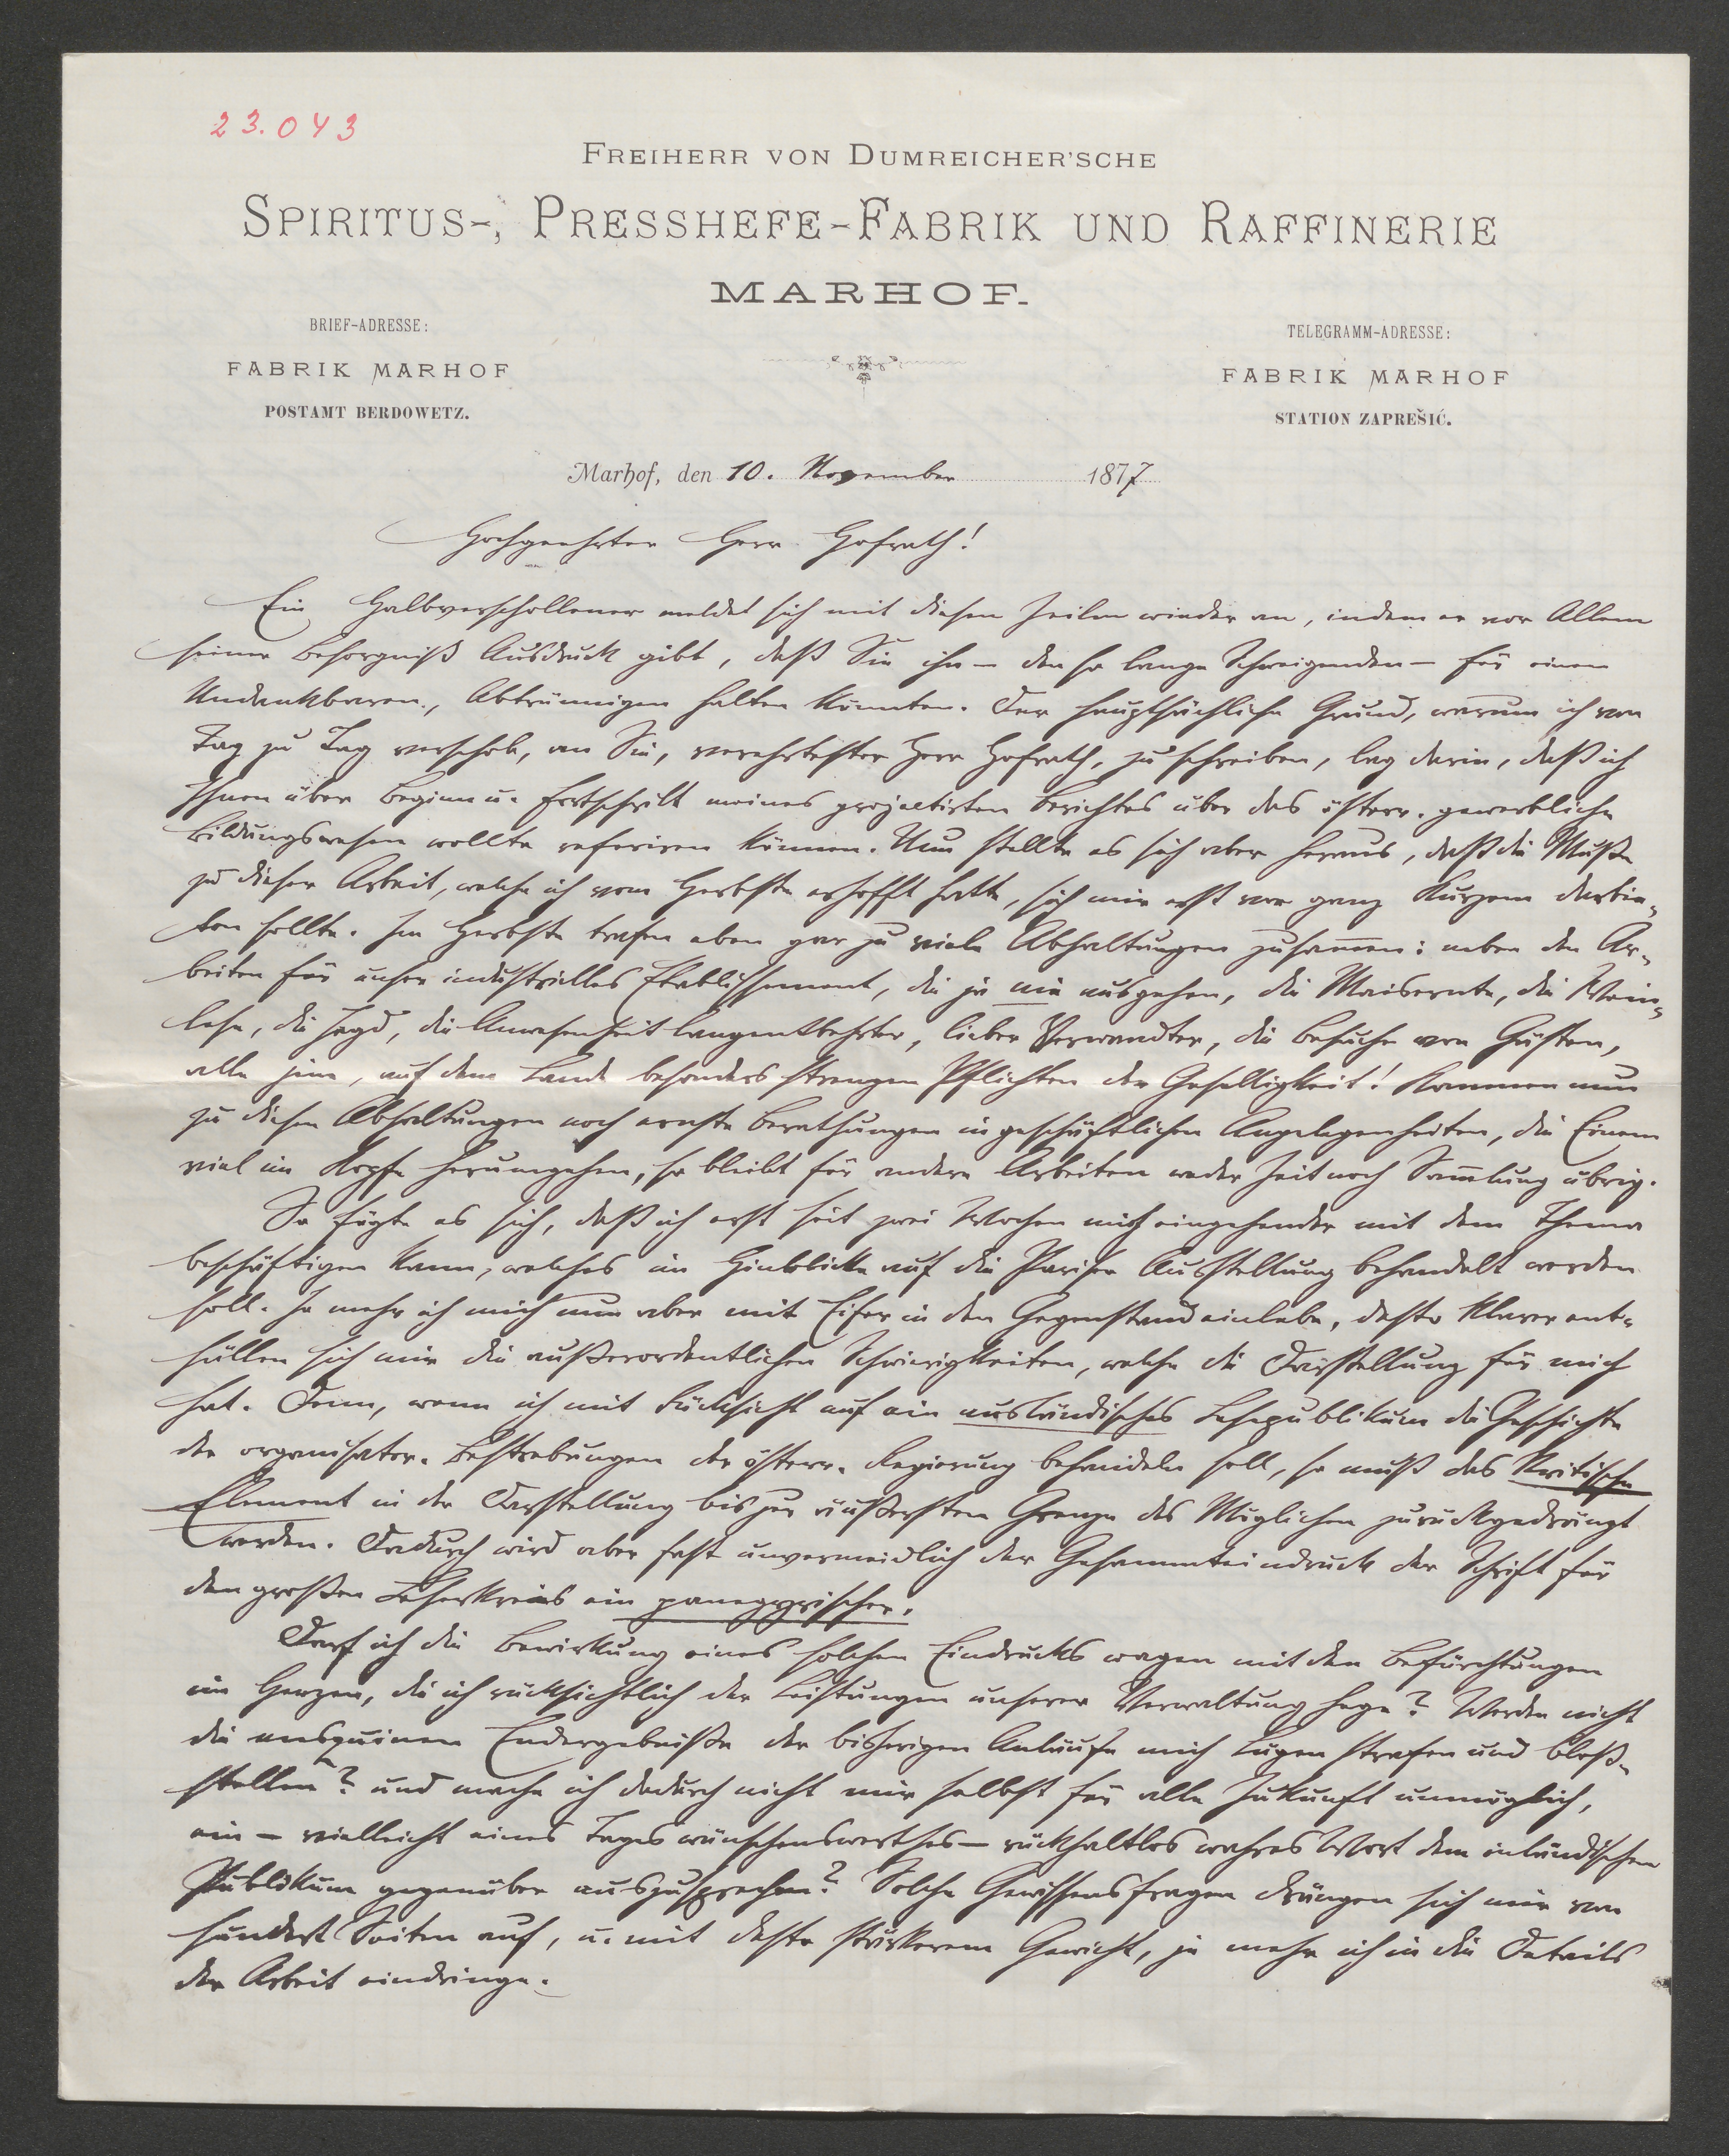 23.043
FREIHERR VON DUMREICHER'SCHE
SPIRITUS-, PRESSHEFE-FABRIK UND RAFFINERIE
MARHOF.
BRIEF-ADRESSE:
FABRIK MARHOF
POSTAMT BERDOWETZ.
TELEGRAMM-ADRESSE:
FABRIK MARHOF
STATION ZAPREŠIĆ.
Marhof, den 10. November 1877
Hochgeehrter Herr Hofrath!
Ein Halbverschollener meldet sich mit diesen Zeilen wieder an, indem er vor Allem
seiner Besorgniß Ausdruck gibt, daß Sie ihn – den so lange Schweigenden – für einen
Undankbaren, Abtrünnigen halten könnten. Der hauptsächliche Grund, warum ich von
Tag zu Tag verschob, an Sie, verehrtester Herr Hofrath, zu schreiben, lag darin, daß ich
Ihnen über Beginn u. Fortschritt meines projectirten Berichtes über das österr. gewerbliche
Bildungswesen wollte referiren können. Nun stellte es sich aber heraus, daß die Muße
zu dieser Arbeit, welche ich vom Herbste erhofft hatte, sich mir erst vor ganz Kurzem darbie-
ten sollte. Im Herbste trafen eben gar zu viele Abhaltungen zusammen: neben den Ar-
beiten für unser industrielles Etablissement, die ja nie ausgehen, die Maisernte, die Wein-
lese, die Jagd, die Anwesenheit langentbehrter, lieber Verwandter, die Besuche von Gästen,
alle jene, auf dem Lande besonders strengen Pflichten der Geselligkeit! Kommen nun
zu diesen Abhaltungen noch ernste Berathungen in geschäftlichen Angelegenheiten, die Einem
viel im Kopfe herumgehen, so bleibt für andere Arbeiten weder Zeit noch Sammlung übrig.
So fügte es sich, daß ich erst seit zwei Wochen mich eingehender mit dem Thema
beschäftigen kann, welches im Hinblicke auf die Pariser Ausstellung behandelt werden
soll. Je mehr ich mich nun aber mit Eifer in den Gegenstand einlebe, desto klarer ent-
hüllen sich mir die außerordentlichen Schwierigkeiten, welche die Darstellung für mich
hat. Denn, wenn ich mit Rücksicht auf ein ausländisches Lesepublikum die Geschichte
der organisator. Bestrebungen der österr. Regierung behandeln soll, so muß das kritische
Element in der Darstellung bis zur äußersten Grenze des Möglichen zurückgedrängt
werden. Dadurch wird aber fast unvermeidlich der Gesammteindruck der Schrift für
den großen Leserkreis ein panegyrischer.
Darf ich die Bewirkung eines solchen Eindrucks wagen mit den Befürchtungen
im Herzen, die ich rücksichtlich der Leistungen unserer Verwaltung hege? Werden nicht
die Endergebnisse der bisherigen Anläufe mich Lügen strafen und bloß-
stellen? und mache ich dadurch nicht mir selbst für alle Zukunft unmöglich,
ein – vielleicht eines Tages wünschenswerthes – rückhaltlos wahres Wort dem inländischen
Publikum gegenüber auszusprechen? Solche Gewissensfragen drängen sich mir von
hundert Seiten auf, u. mit desto stärkerem Gewicht, je mehr ich in die Details
der Arbeit eindringe.